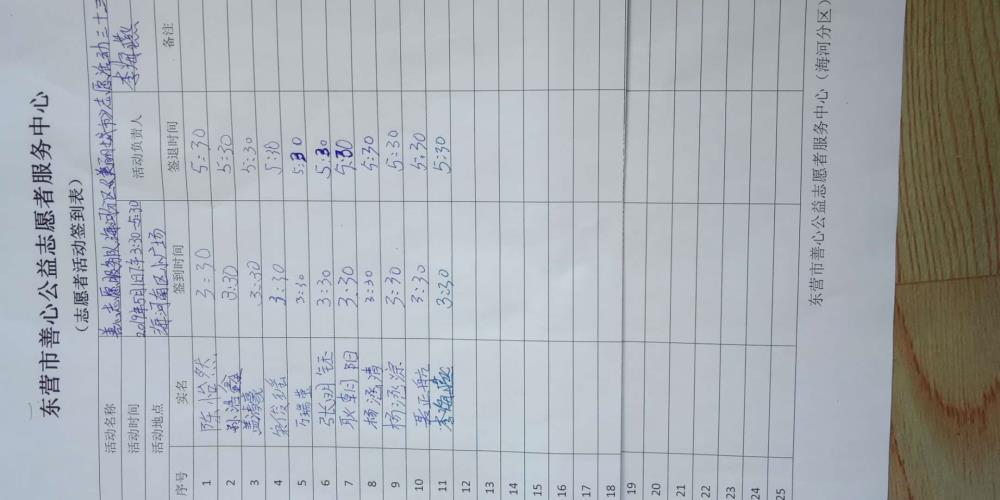 东营市善心公益志愿者服务中心
（志愿者活动签到表）
活动名称 善心志愿服务队海河分区《美丽城市》志愿活动三十三
活动时间 2019年5月1日下午3:30-5:30 活动负责人 李海燕
活动地点 海河南区小广场
序号 实名 签到时间 签退时间 备注
1 陈怡然 3:30 5:30
2 孙浩鑫 3:30 5:30
3 3:30 5:30
4 3:30 5:30
5 3:30 5:30
6 张明钰 3:30 5:30
7 耿朝阳 3:30 5:30
8 杨涵清 3:30 5:30
9 杨涵淙 3:30 5:30
10 聂正航 3:30 5:30
11 李海燕 3:30 5:30
12
13
14
15
16
17
18
19
20
21
22
23
24
25
东营市善心公益志愿者服务中心（海河分区）